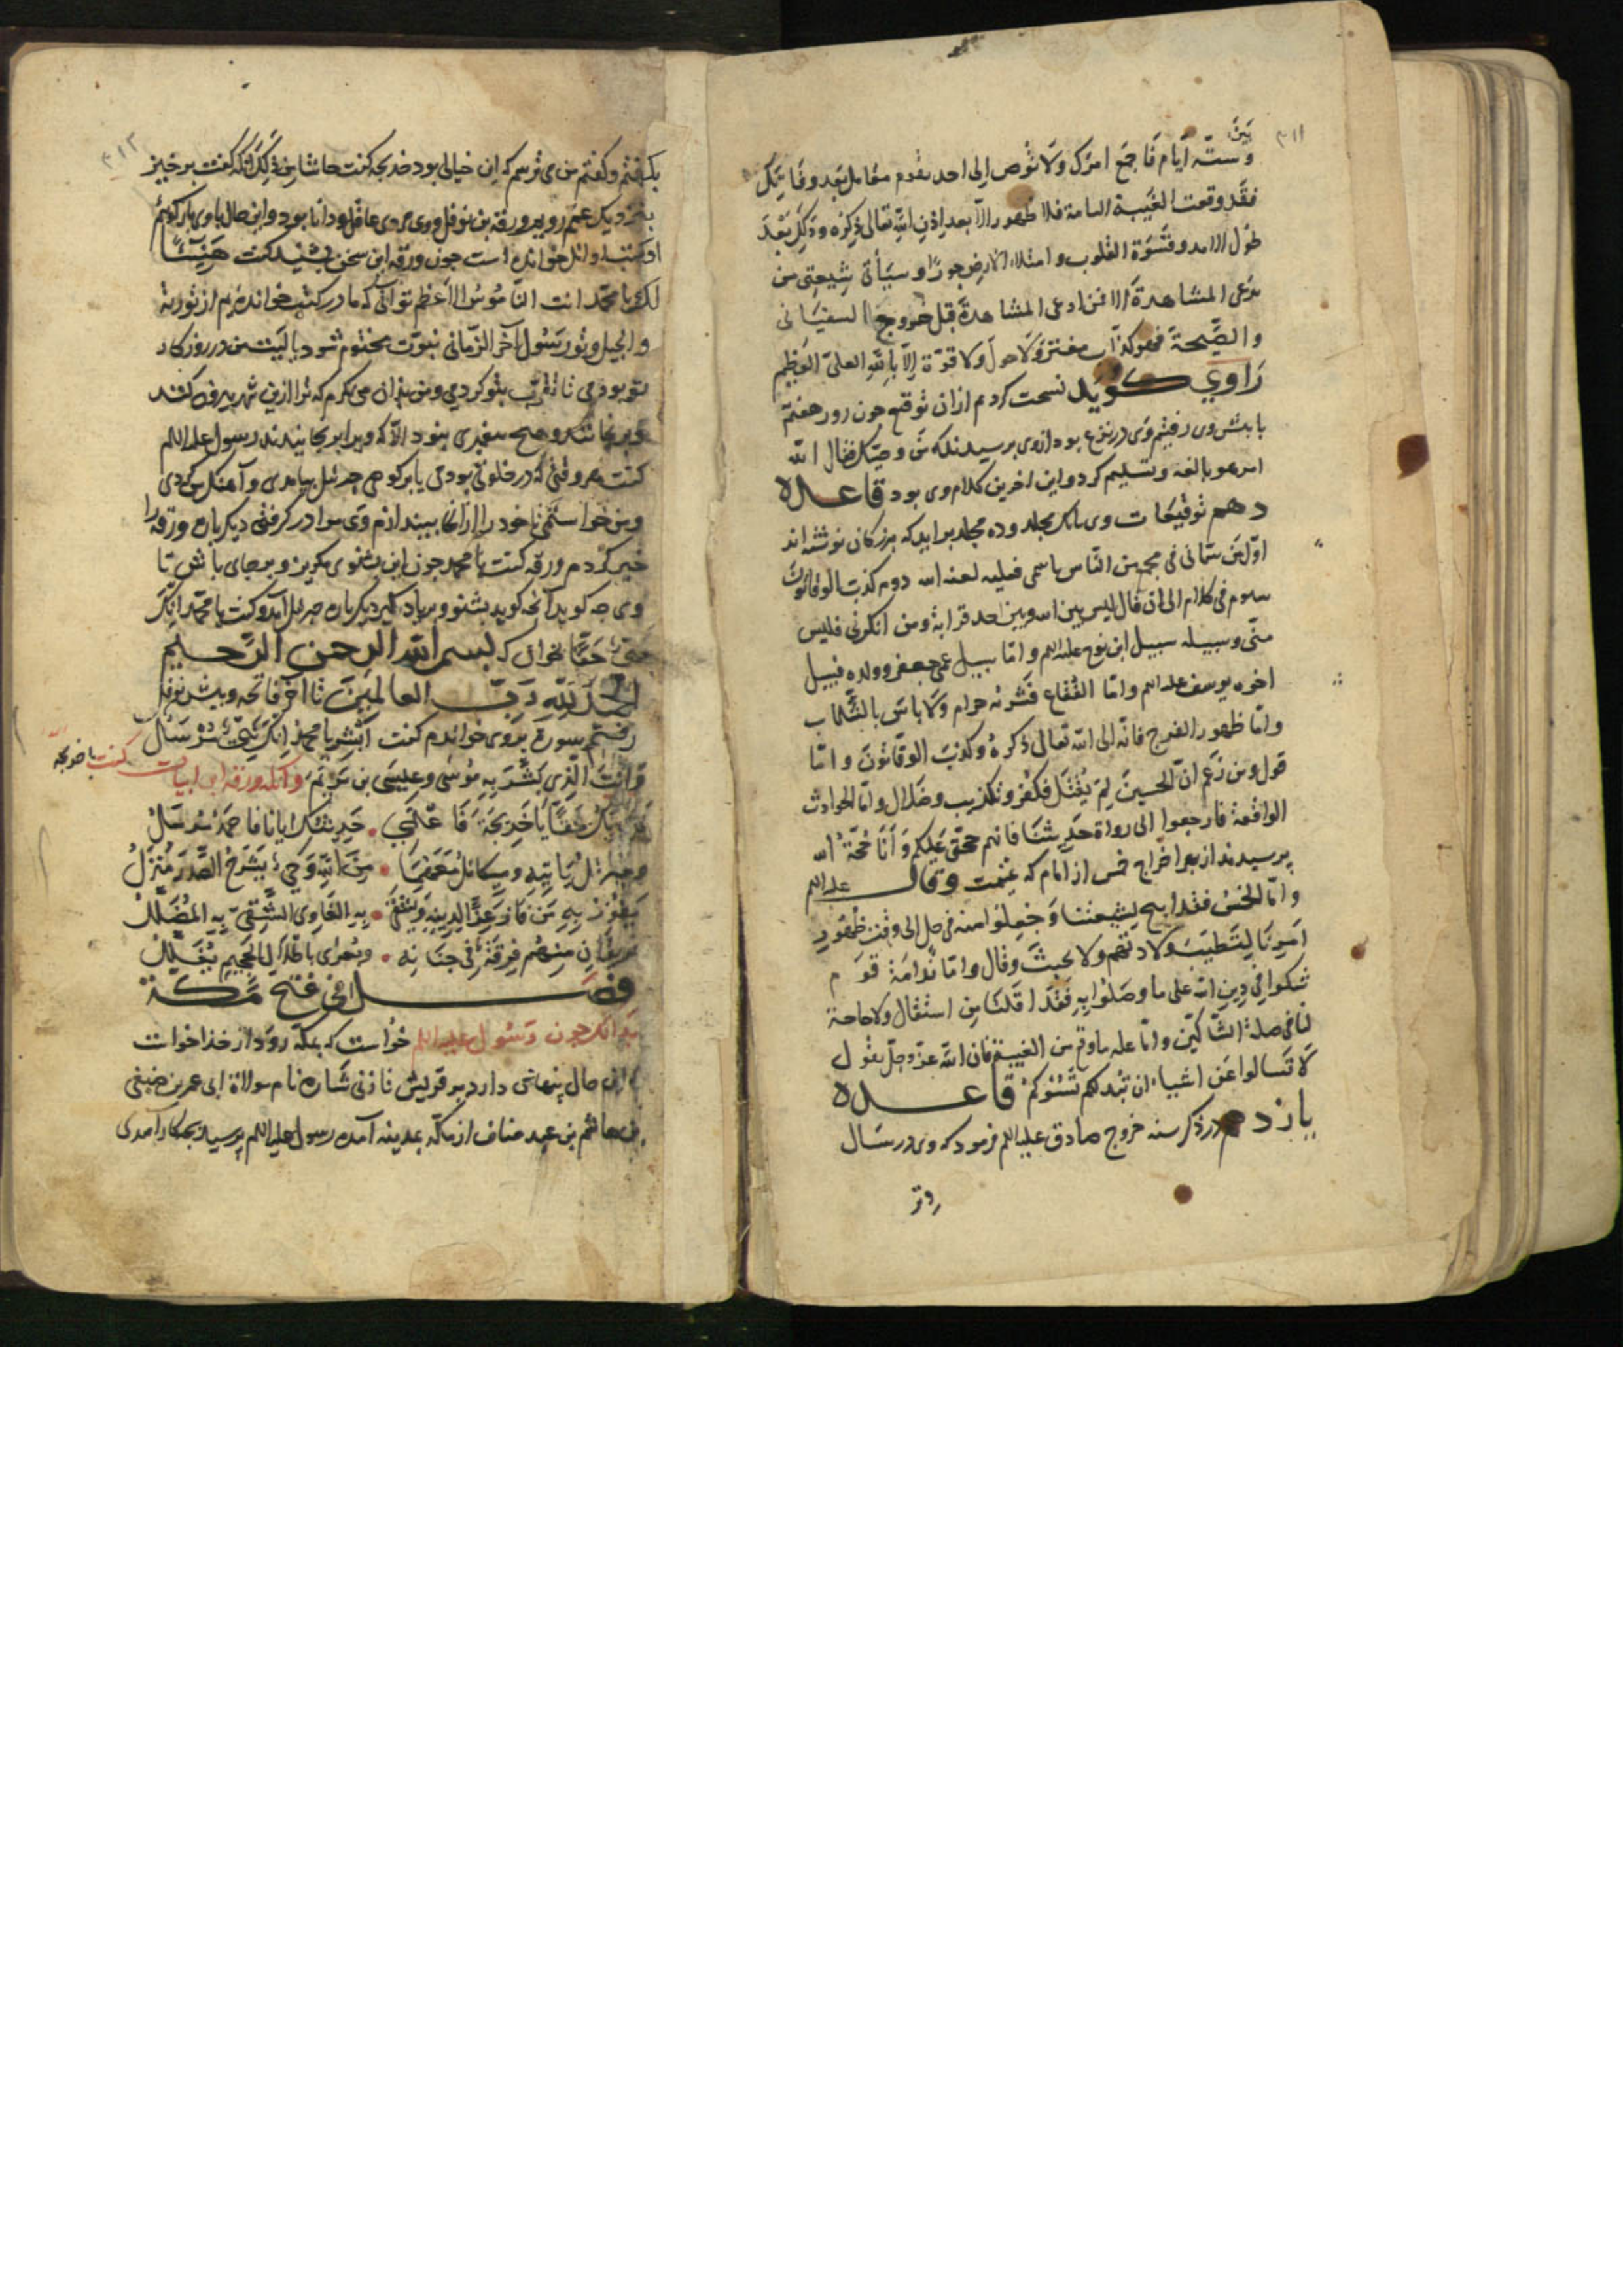 ۳۱۱
بین
وستّه ایام فاجمع امرک ولا توص الی احد یقوم مقامک بعد وفاتک
فقد وقعت الغیبة التامة فلا ظهور الّا بعد اذن الله تعالی ذکره وذلک بعد
طول الامد وقسوة القلوب وامتلاء الارض جورًا وسیأتی شیعتی من
یدّعی المشاهدة الا فمن ادعی المشاهدة قبل خروج السفیانی
والصّیحة فهو کذّاب مفتر ولا حول ولا قوّة الّا بالله العلیّ العظیم
راوی گوید نسخت کردم از ان توقیع چون روز هفتم
با پیش وی رفتیم وی در نزع بود از وی پرسیدند که من وصیّک فقال الله
امر هو بالغه وتسلیم کرد و این اخرین کلام وی بود قاعده
دهم توقیعات وی یک مجلد و ده مجلد براید که بزرگان نوشته اند
اوّل من سمّانی فی مجمع من النّاس باسمی فعلیه لعنة الله دوم کذب الوقاتون
سیوم فی کلام الی ان قال لیس بین الله وبین احد قرابة ومن انکرنی فلیس
منّی وسبیله سبیل ابن نوح علیه السلم وامّا سبیل عمی جعفر وولده فسبیل
اخوه یوسف علیه السلم وامّا الفقاع فشربه حرام ولا باس بالشلماب
وامّا ظهور الفرج فانّه الی الله تعالی ذکره وکذب الوقّاتون وامّا
قول من زعم انّ الحسین لم یقتل فکفر وتکذیب وضلال وامّا الحوادث
الواقعة فارجعوا الی رواة حدیثنا فانهم حجتی علیکم وانا حجّة الله
پرسیدند از بهر اخراج خمس از امام که غیبت وقال علیه السلم
وامّا الخمس فقد ابیح لشیعتنا وجعلوا منه فی حل الی وقت ظهور
امرنا لتطیب ولادتهم ولا تخبث وقال وامّا ندامة قوم
شکوا فی دین الله علی ما وصلوا به فقد اقلنا من استقال ولا حاجة
لنا فی صلة الشّاکّین وامّا علة ما وقع من الغیبة فان الله عزّ وجلّ یقول
لا تسالوا عن اشیاء ان تبد لکم تسؤکم قاعده
یازدهم در ذکر سنه خروج صادق علیه السلم فرمود که وی در سال
وتر
۳۱۲
بگفتم وگفتم من می ترسم که این خیالی بود خدیجه گفت حاشا من ذلک انکه گفت برخیز
بنزدیک عمم رو ورقه بن نوفل ووی مردی عاقل ودانا بود واین حال با وی بازگویم
او کتب اوایل خوانده است چون ورقه این سخن بشنید گفت هنیئًا
لک یا محمّد انت النّاموس الاعظم تو انی که ما در کتب خوانده ایم از توریة
وانجیل وتو رسول آخر الزّمانی نبوّت مختوم شود یا لیت من در روزگار
تو بودمی تا تقرّب بتو کردمی ومن بدان می نگرم که ترا ازین شهر بیرون کنند
وبرنجانند وهیچ پیغمبری نبود الّا که ویرا برنجانیدند رسول علیه السلم
گفت هر وقتی که در خلوتی بودمی یا بر کوهی جبرئیل بیامدی وآهنگ من کردی
ومن خواستمی تا خود را از انجا بیندازم وی مرا در گرفتی دیگر باره ورقه را
خبر کردم ورقه گفت یا محمد چون این بشنوی مگریز وبر جای باش تا
وی چه گوید آنچه گوید بشنو وبیاد گیر دیگر باره جبرئیل آمد وگفت یا محمّد انک
نبیّ حقًّا بخوان که بسم الله الرحمن الرّحیم
الحمد لله ربّ العالمین تا آخر فاتحه وپیش نوفل
رفتم سورة بر وی خواندم گفت ابشر یا محمد انک نبیّ مرسل
وانت الّذی بشّر به موسی وعیسی بن مریم وانکه ورقه این ابیات گفت با خدیجه
فان یک حقًّا یا خدیجة فاعلمی . حدیثک ایانا فاحمد مرسل
وجبرئیل یاتیه ومیکائل معهما . من الله وحی یشرح الصّدر منزل
یفوز به من فاز عزًّا لدینه . ویشقی به الغاوی الشّقیّ المضلّل
فریقان منهم فرقة فی جنانه . واخری باغلال الجحیم تغلّل
فصل فی فتح مکّة
بدانکه چون رسول علیه السلم خواست که بمکّه رود از خدا خواست
که این حال پنهانی دارد بر قریش تا زنی ساره نام مولاة ابی عمر بن صیفی
بن هاشم بن عبد مناف از مکّه بمدینه آمد رسول علیه السلم پرسید بچه کار آمدی